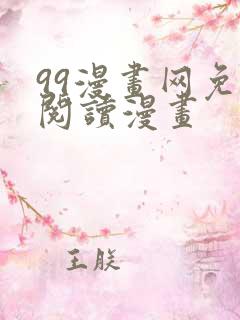 99漫畫网免
閱讀漫畫
王朕